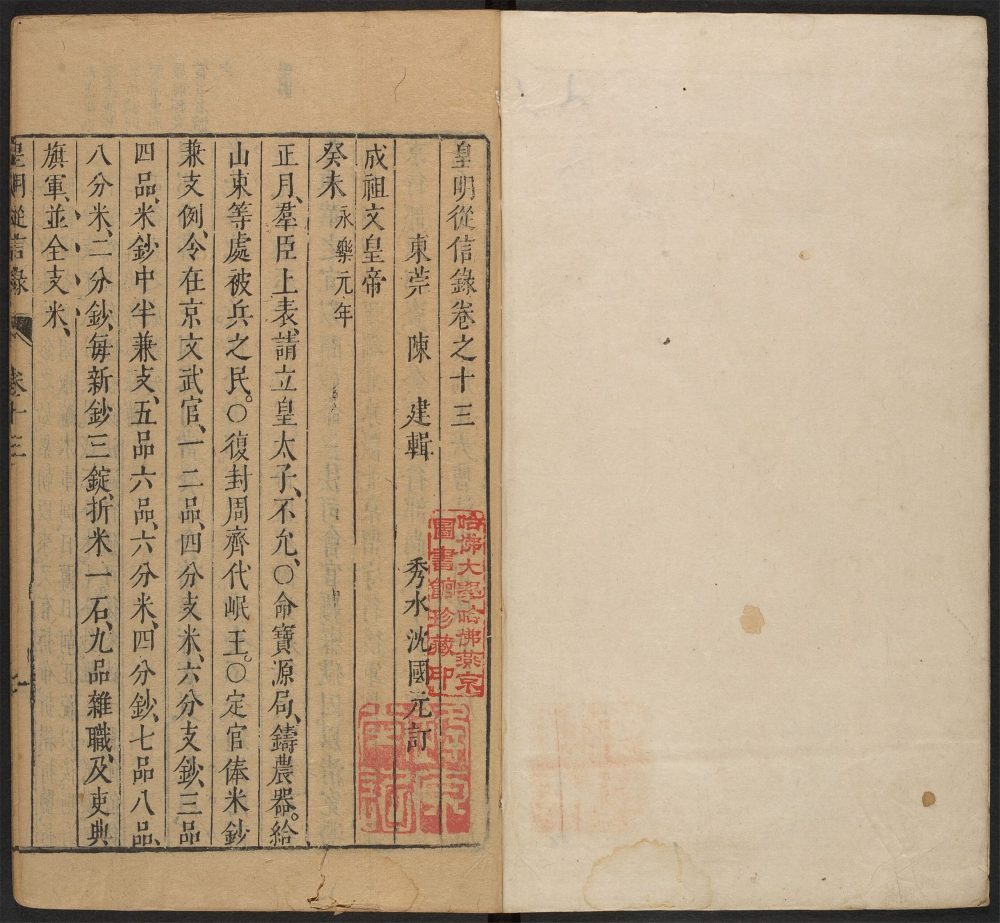 皇明從信錄卷之十三
東莞 陳 建輯 秀水沈國元訂
成祖文皇帝
癸未 永樂元年
正月、羣臣上表、請立皇太子、不允、〇命寶源局、鑄農器。給
山東等處被兵之民。〇復封周齊代岷王。〇定官俸米鈔
兼支例、令在京文武官、一二品、四分支米、六分支鈔、三品
四品、米鈔中半兼支、五品六品、六分米、四分鈔、七品八品、
八分米、二分鈔、每新鈔三錠、折米一石、九品雜職、及吏典
旗軍、並全支米、
皇明從信錄 卷十三 一
哈佛大學哈佛燕京
圖書館珍藏印